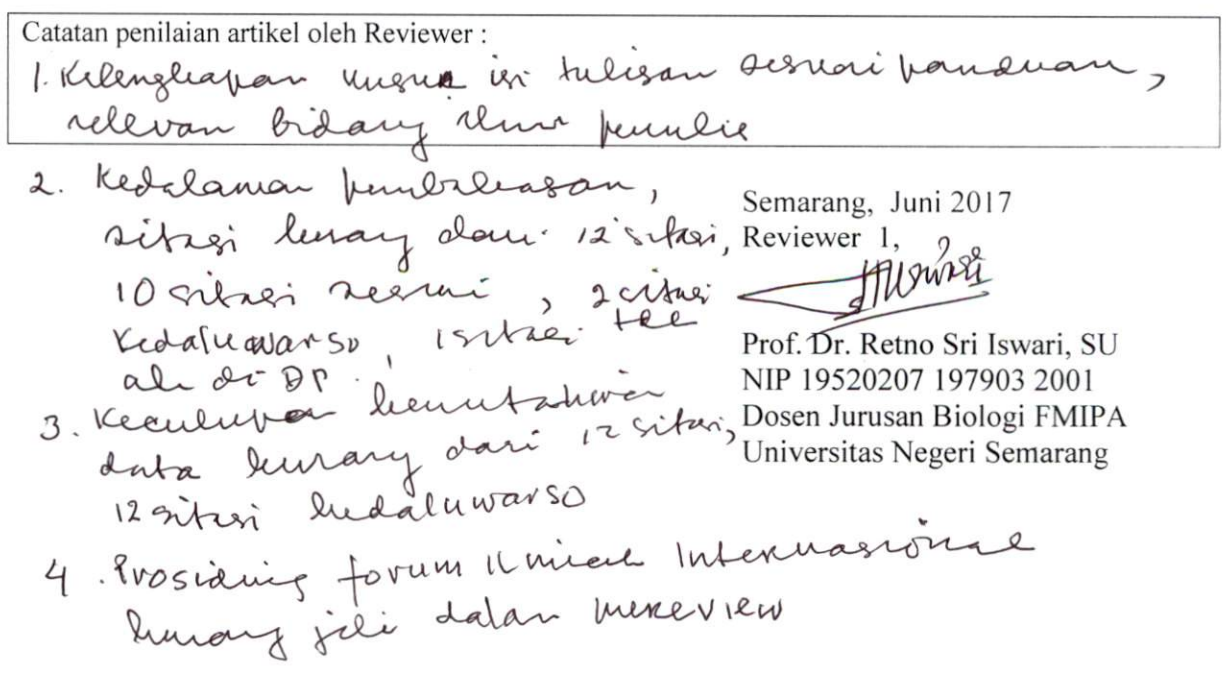 Catatan penilaian artikel oleh Reviewer :
1. Kelengkapan unsur isi tulisan sesuai panduan,
relevan bidang ilmu penulis
2. Kedalaman pembahasan,
sitasi kurang dari 12 sitasi,
10 sitasi sesuai, 2 citasi
kedaluwarso, 1 sitasi
di DP.
3. Kecukupan kemutahiran
data kurang dari 12 sitasi,
12 sitasi kedaluwarso
4. Prosiding forum Ilmiah Internasional
kurang jeli dalam mereview
Semarang, Juni 2017
Reviewer 1,
Prof. Dr. Retno Sri Iswari, SU
NIP 19520207 197903 2001
Dosen Jurusan Biologi FMIPA
Universitas Negeri Semarang